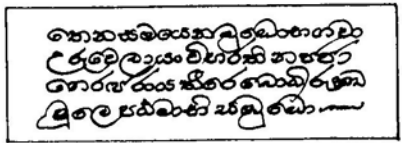 තෙනසමයෙනබුද්ධොභගවා
උරුවෙලායං විහරති නජ්ජා
නෙරඤ්ජරාය තීරෙ බොධිරුක්ඛ
මූලෙ පඨමාභි සම්බුද්ධො